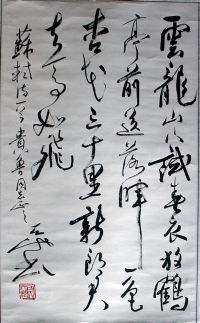 雲龍山下試春衣放鶴
亭前送落暉一色
杏花三十里新郎君
去馬如飛
蘇軾詩一首貴魯同志正之